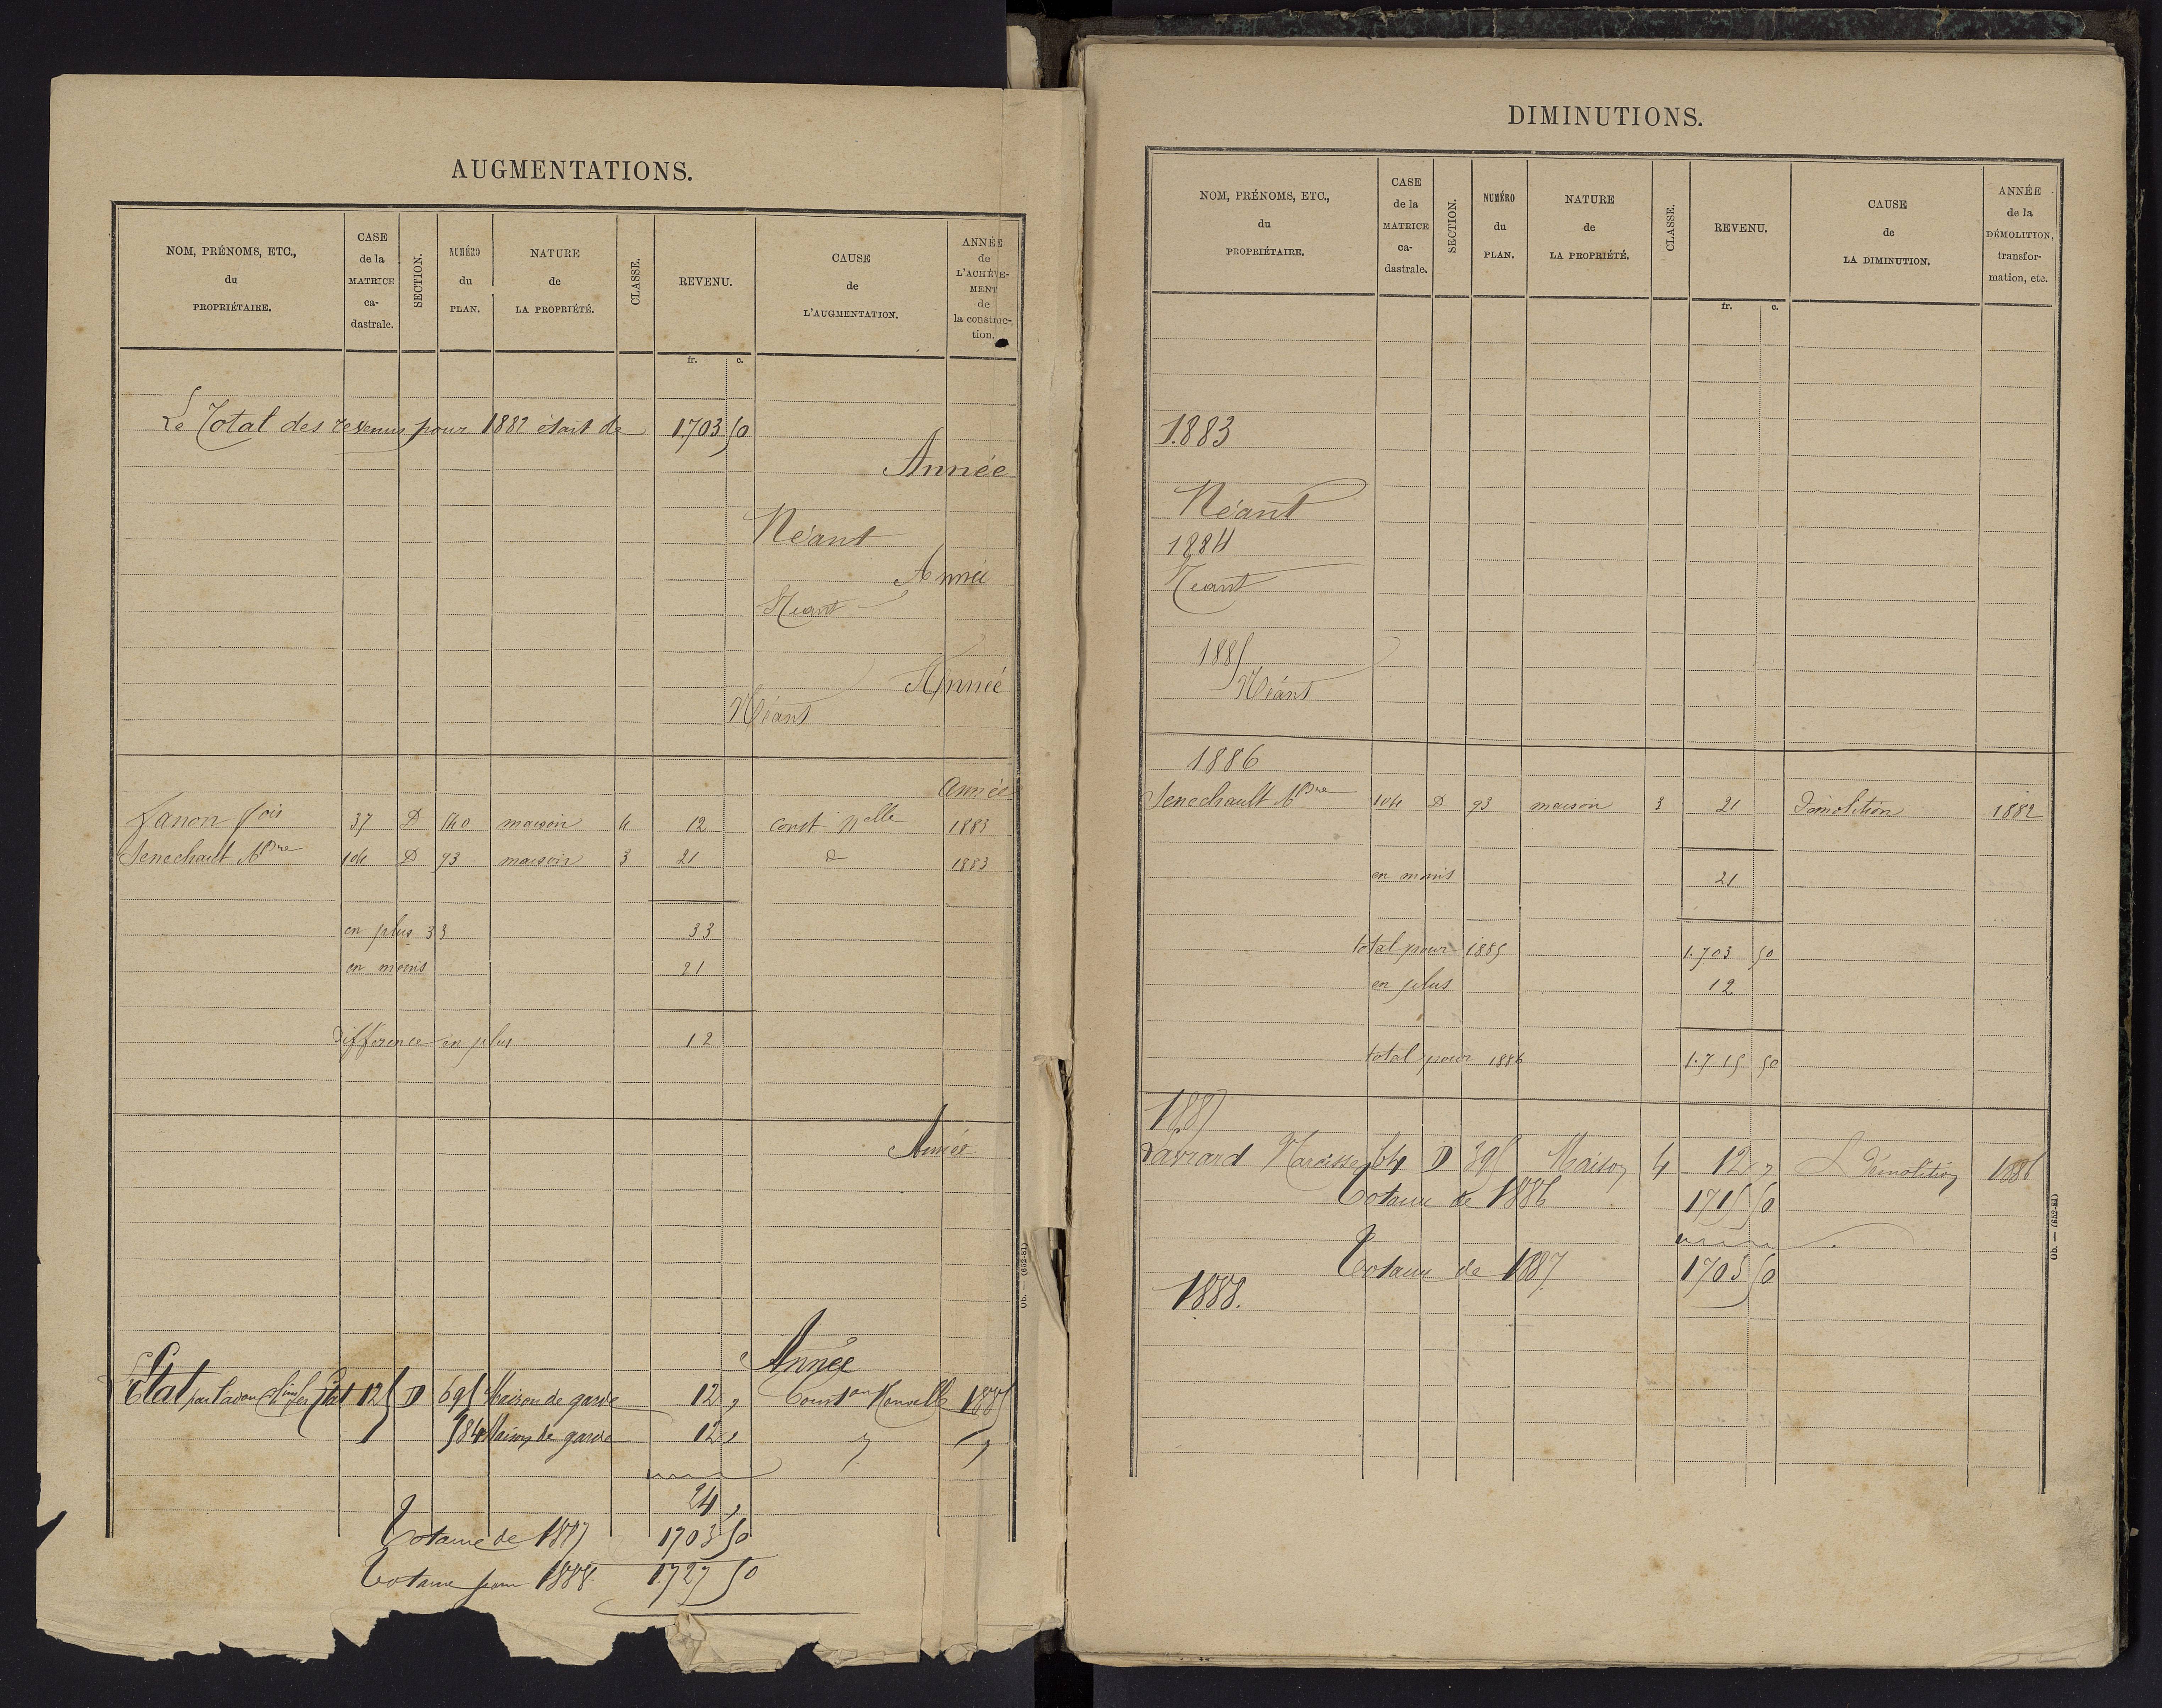 AUGMENTATIONS.
NOM, PRÉNOMS, ETC., du PROPRIÉTAIRE.
CASE de la MATRICE ca-dastrale.
SECTION.
NUMÉRO du PLAN.
NATURE de LA PROPRIÉTÉ.
CLASSE.
REVENU.
CAUSE de L'AUGMENTATION.
ANNÉE de L'ACHÈVE-MENT de la construc-tion.
fr. c.
Le Total des revenus pour 1882 était de 1703 50
Année
Néant
Année
Néant
Année
Néant
Année
Fanon fois 37 D 140 maison 4 12 const nelle 1883
Senechault 104 D 93 maison 3 21 d 1883
en plus 33 33
en moins 21
différence en plus 12
Année
Année
Etat 125 D 695 Maison de garde 12 " Conston Nouvelle 1885
584 Maison de garde 12 " " "
24 "
Totaux de 1887 1703 50
Totaux pour 1888 1727 50
Ob. — (652-81)
DIMINUTIONS.
NOM, PRÉNOMS, ETC., du PROPRIÉTAIRE.
CASE de la MATRICE ca-dastrale.
SECTION.
NUMÉRO du PLAN.
NATURE de LA PROPRIÉTÉ.
CLASSE.
REVENU.
CAUSE de LA DIMINUTION.
ANNÉE de la DÉMOLITION, transfor-mation, etc.
fr. c.
1883
Néant
1884
Néant
1885
Néant
1886
Senechault 104 D 93 maison 3 21 Démolition 1882
en moins 21
total pour 1885 1.703 50
en plus 12
total pour 1886 1.715 50
1887
Narcisse 64 D 395 Maison 4 12 " Démolition 1886
Totaux de 1886 1715 50
Totaux de 1887 1703 50
1888.
Ob. — (652-81)